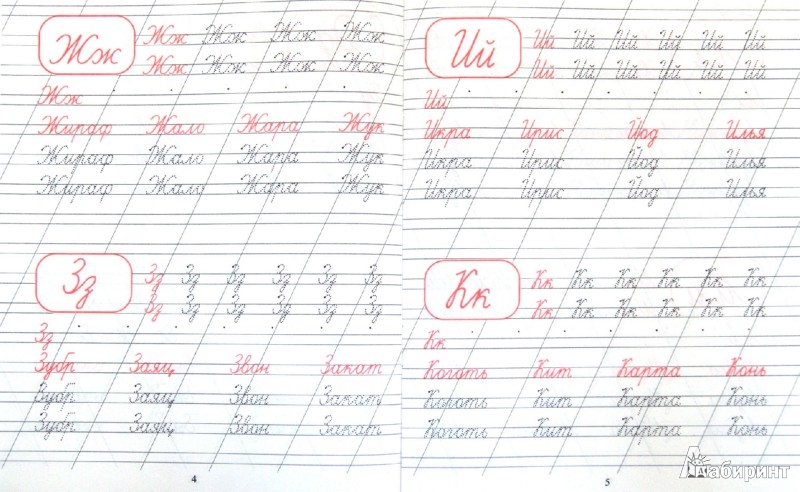 Жж
Жж Жж Жж Жж
Жж Жж Жж Жж
Жж
Жираф Жало Жара Жук
Жираф Жало Жара Жук
Жираф Жало Жара Жук
Зз
Зз Зз Зз Зз Зз Зз
Зз Зз Зз Зз Зз Зз
Зз
Зубр Заяц Звон Закат
Зубр Заяц Звон Закат
Зубр Заяц Звон Закат
4
Ий
Ий Ий Ий Ий Ий Ий
Ий Ий Ий Ий Ий Ий
Ий
Икра Ирис Йод Илья
Икра Ирис Йод Илья
Икра Ирис Йод Илья
Кк
Кк Кк Кк Кк Кк Кк
Кк Кк Кк Кк Кк Кк
Кк
Коготь Кит Карта Конь
Коготь Кит Карта Конь
Коготь Кит Карта Конь
5
Лабиринт